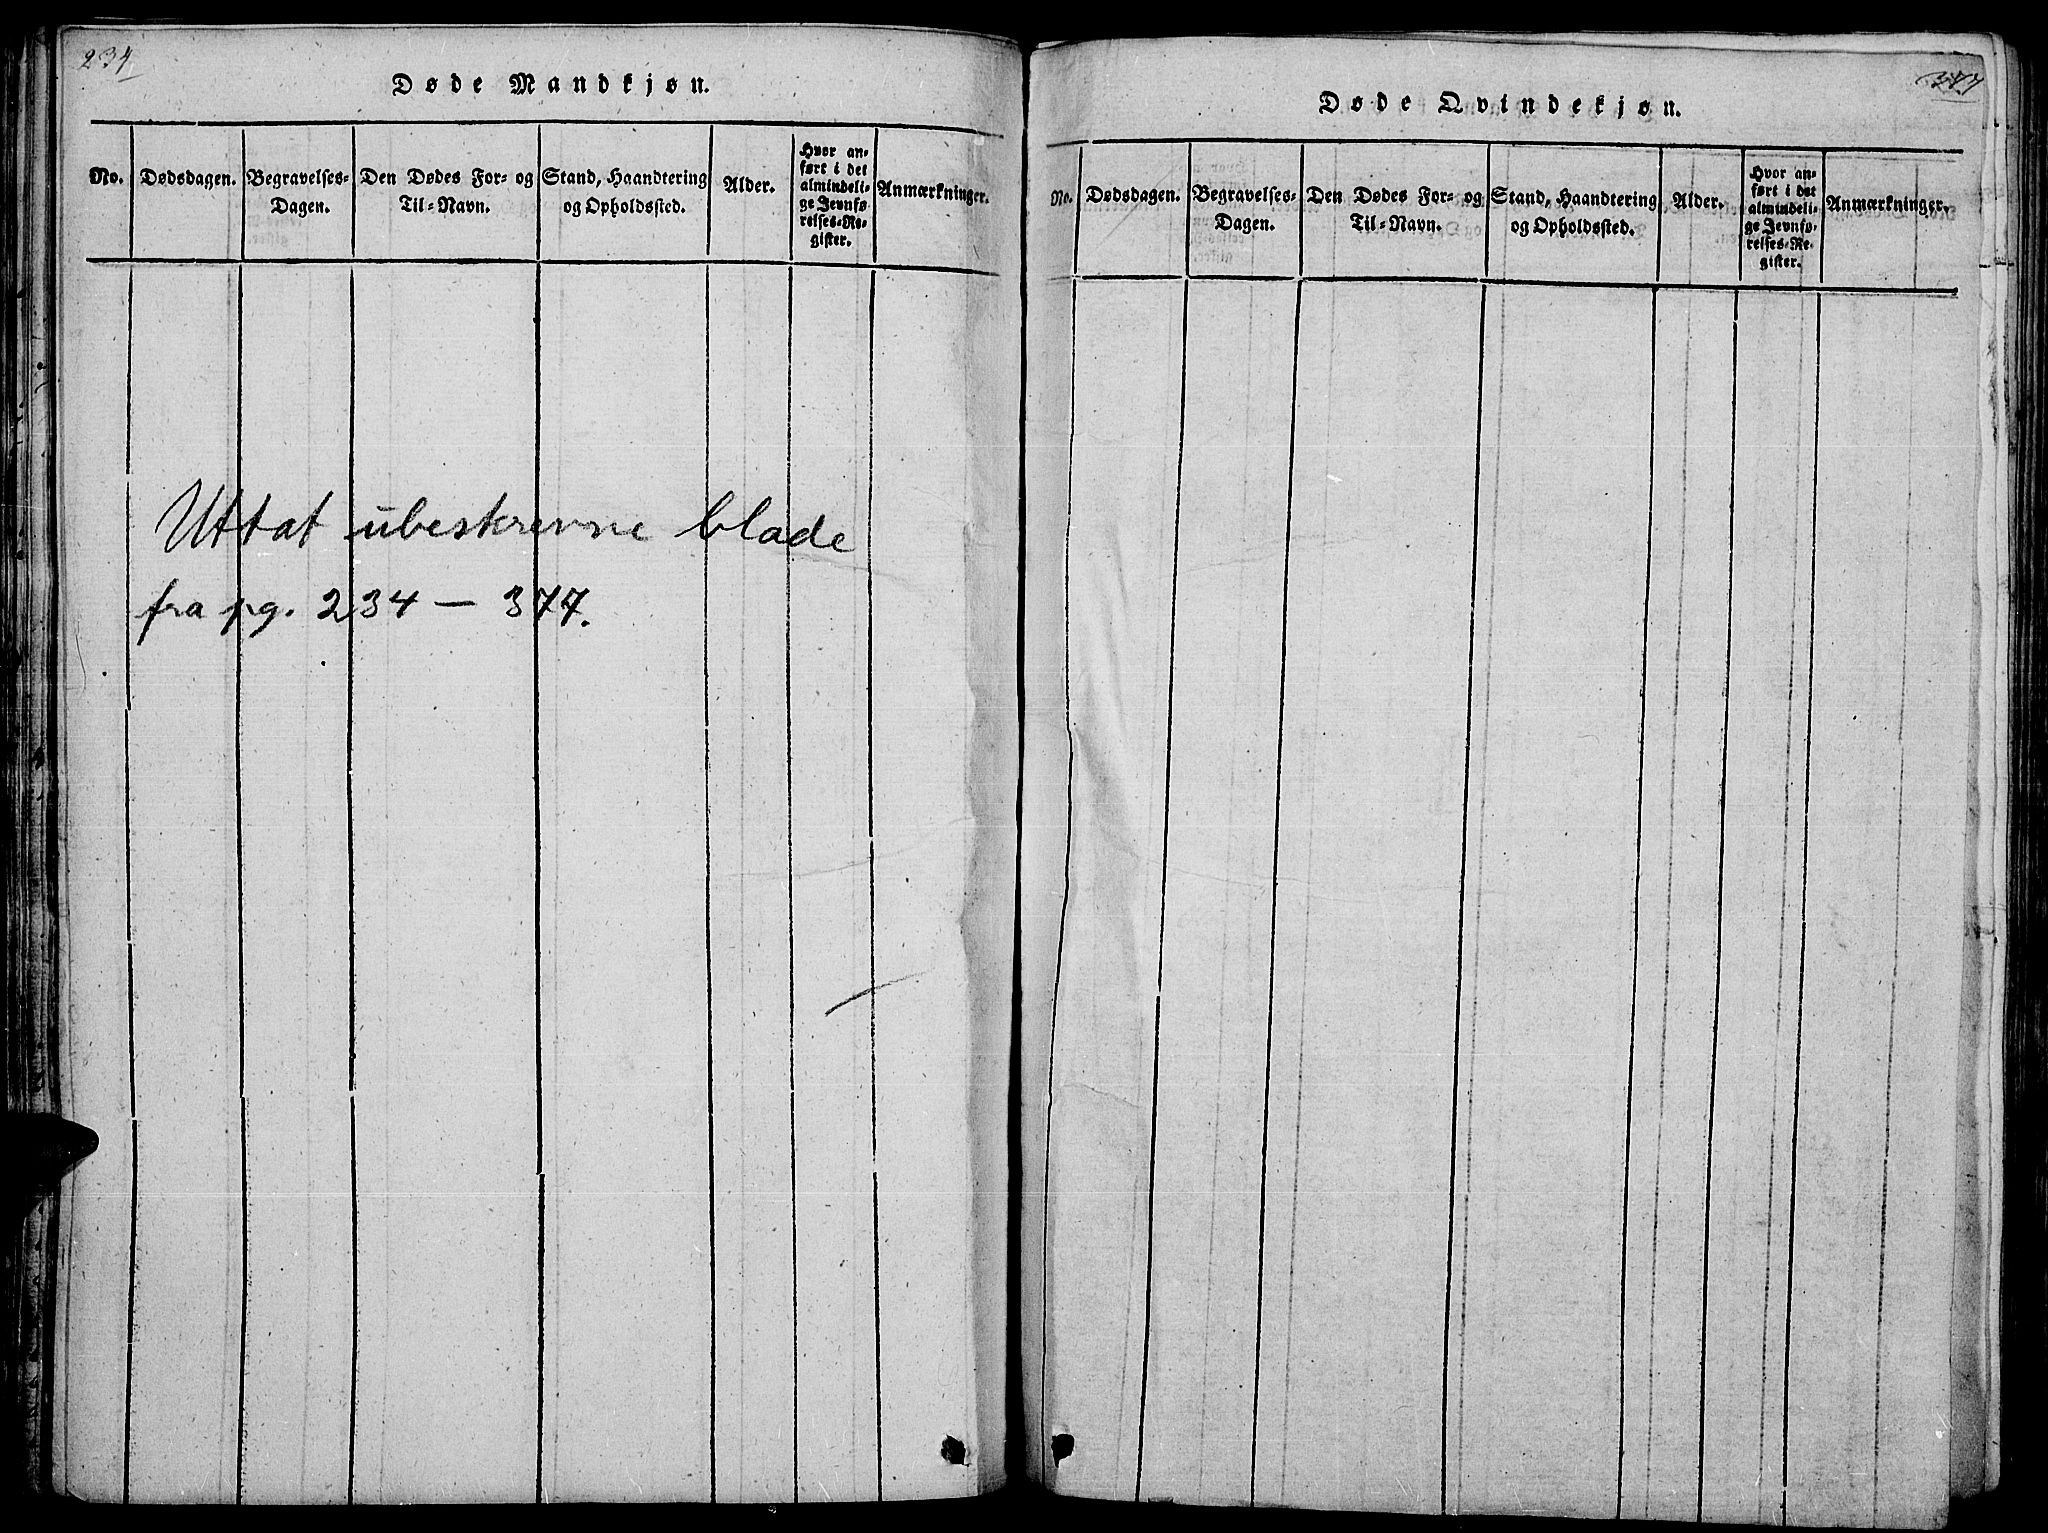 234
Døde Mandkjøn.
No.
Dødsdagen.
Begravelses-
Dagen.
Den Dødes For- og
Til-Navn.
Stand, Haandtering
og Opholdssted.
Alder.
Hvor an-
ført i det
almindeli-
ge Jevnfø-
relses-Re-
gister.
Anmærkninger.
Uttat ubeskrevne blade
fra pg. 234 — 377.
377
Døde Qvindekjøn.
No.
Dødsdagen.
Begravelses-
Dagen.
Den Dødes For- og
Til-Navn.
Stand, Haandtering
og Opholdssted.
Alder.
Hvor an-
ført i det
almindeli-
ge Jevnfø-
relses-Re-
gister.
Anmærkninger.